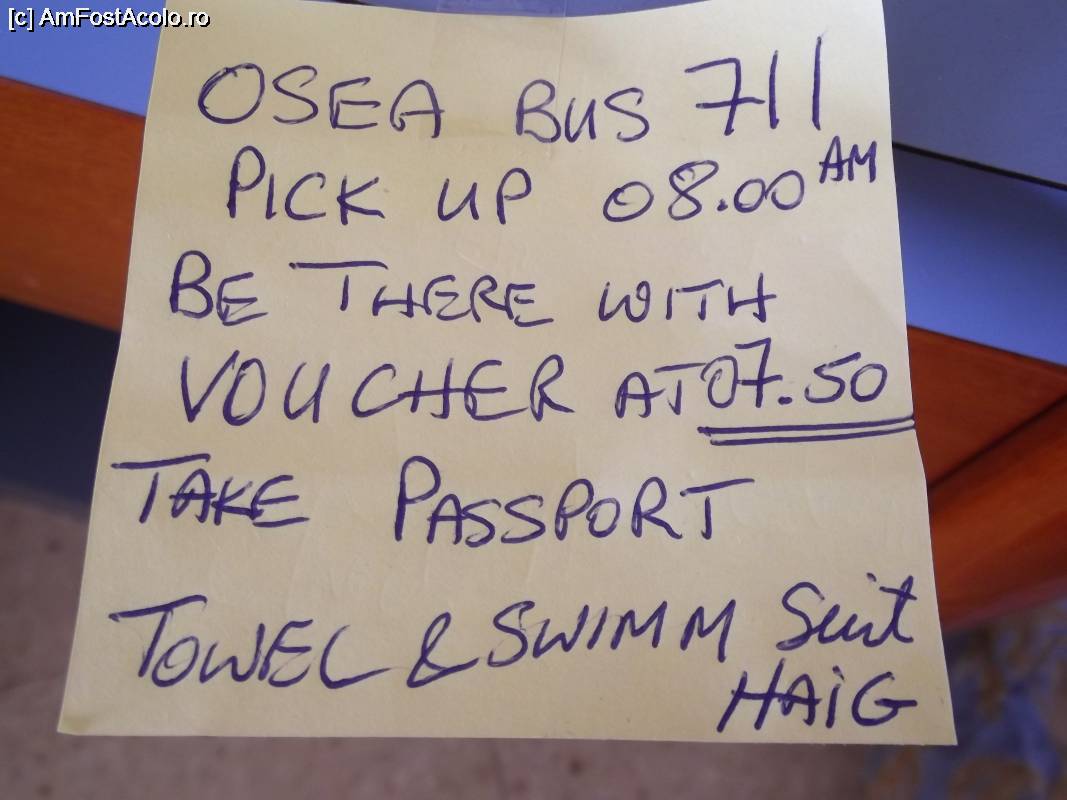 [c] AmFostAcolo.ro
OSEA BUS 711
PICK UP 08.00 AM
BE THERE WITH
VOUCHER AT 07.50
TAKE PASSPORT
TOWEL & SWIMM Suit
HAiG